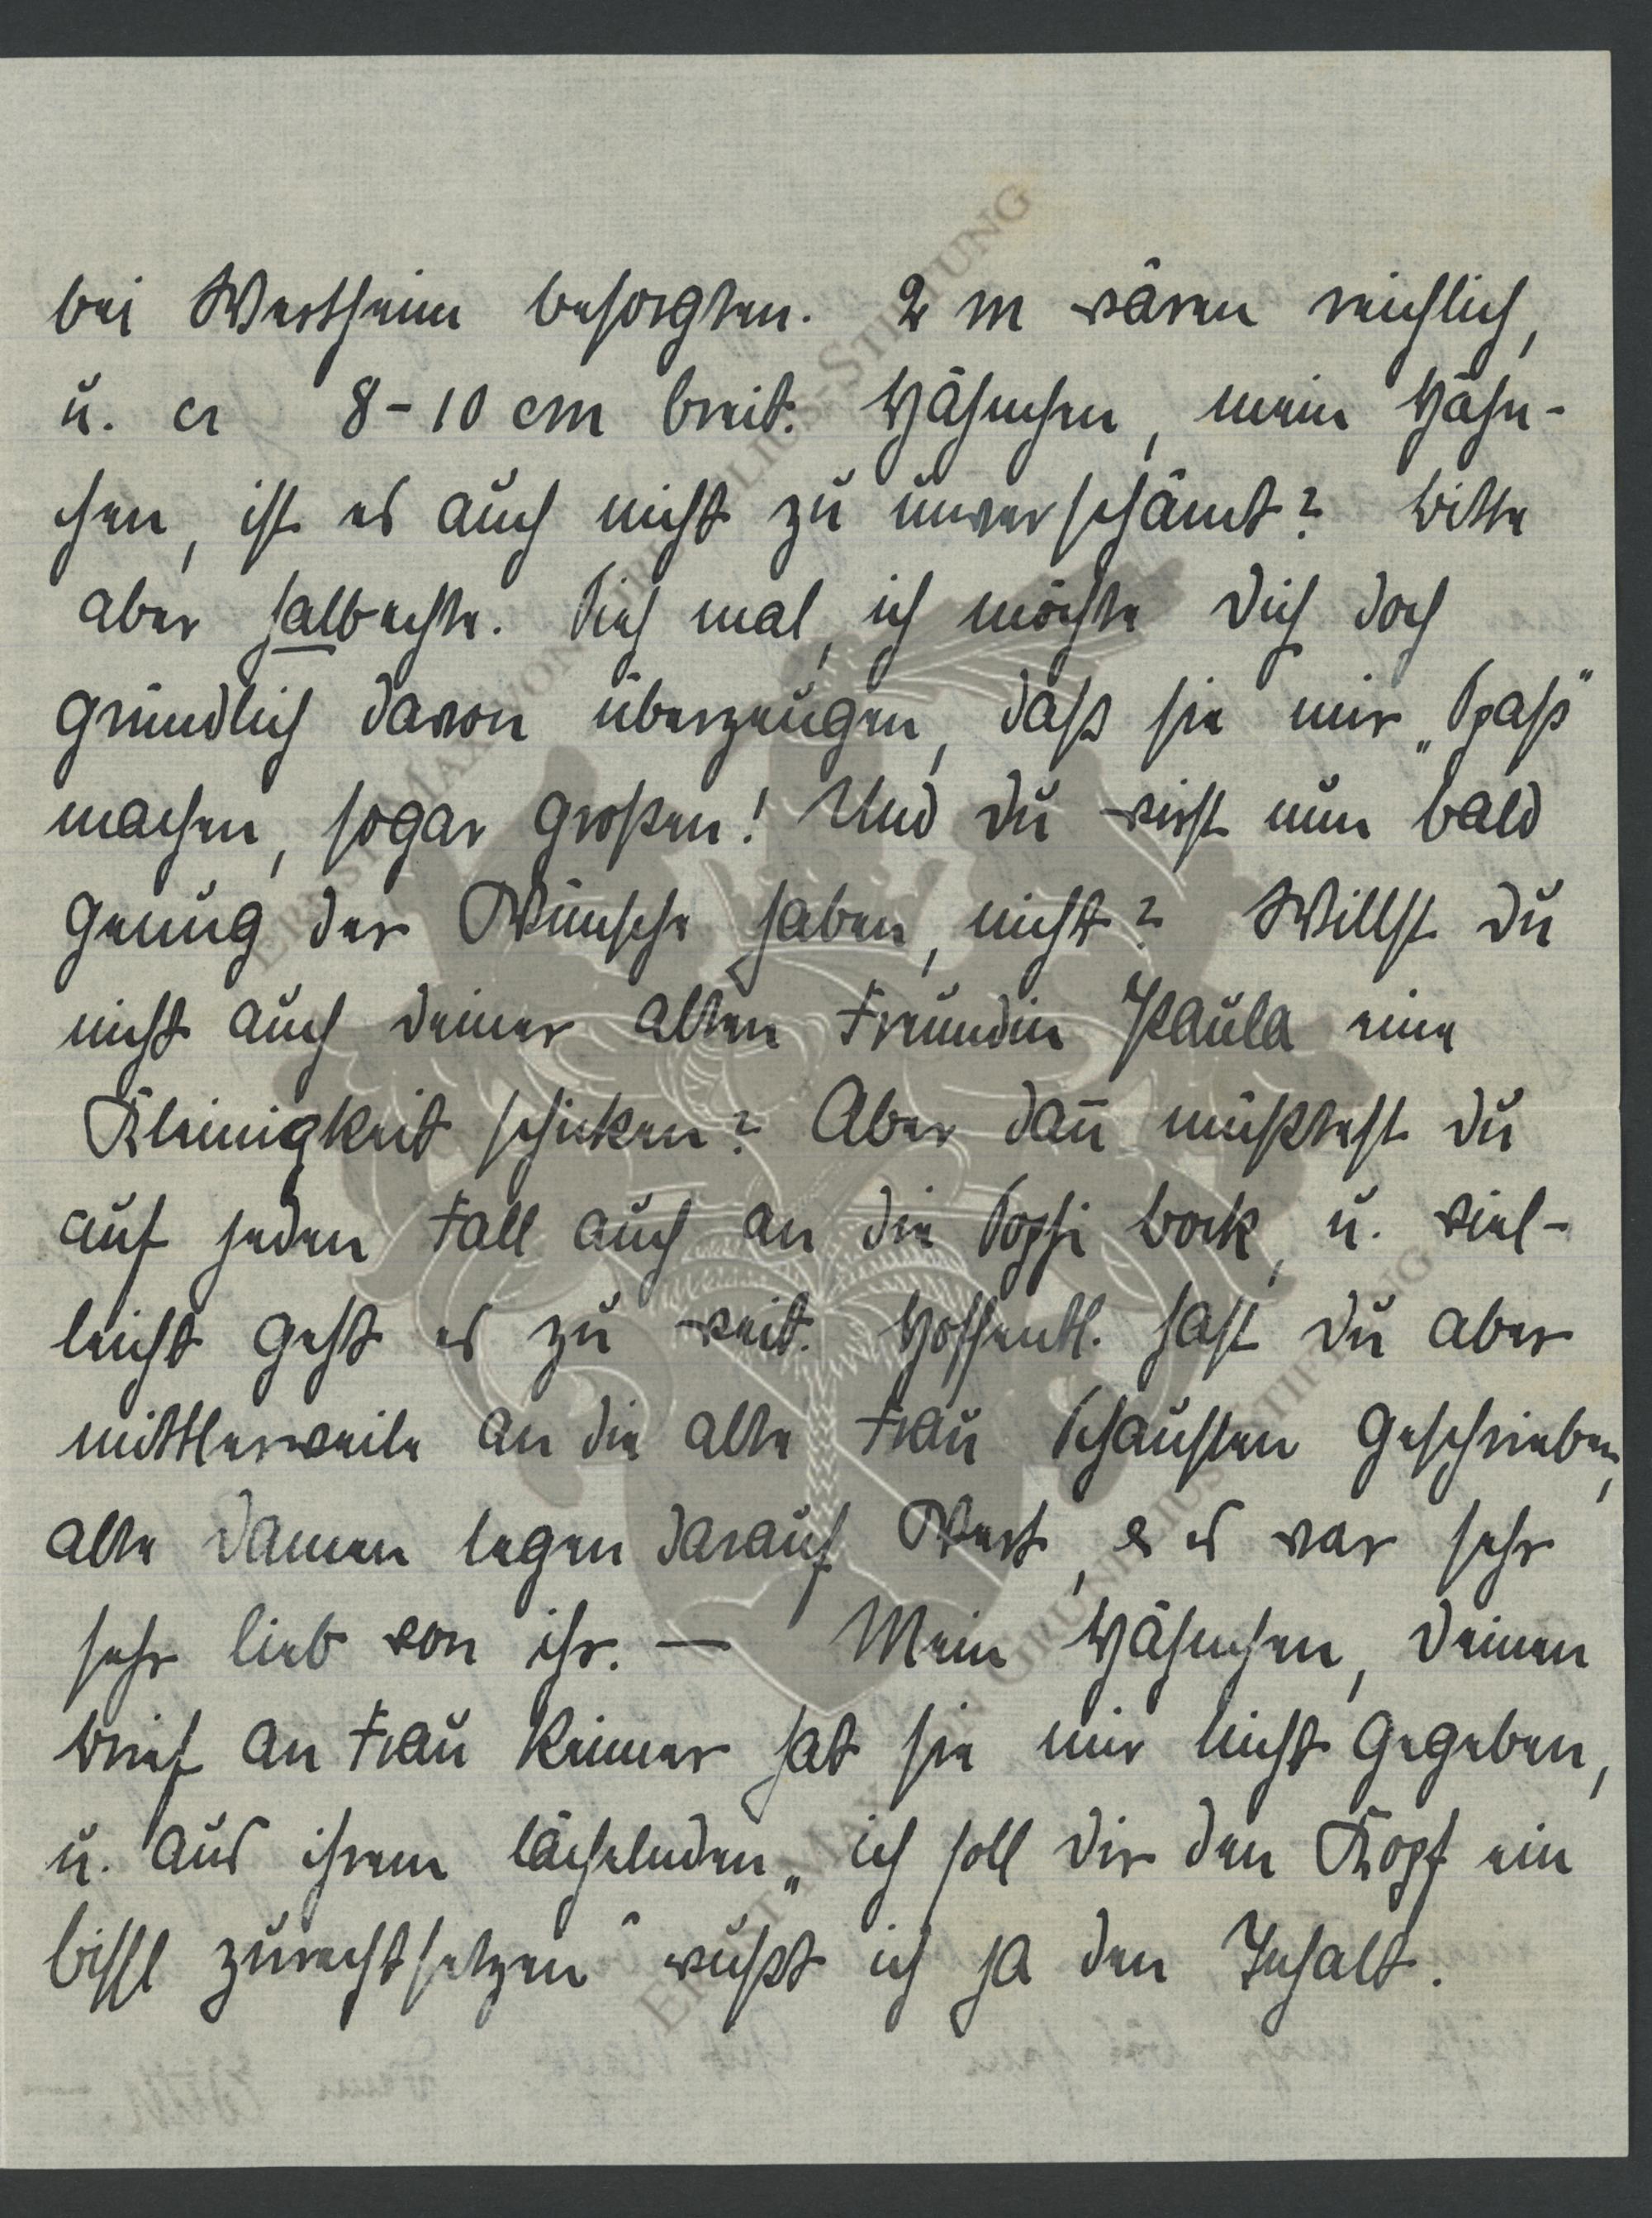 bei Wertheim besorgten. 2 m wären reichlich,
u. ca 8-10 cm breit. Hähnchen, mein Hähn-
chen, ist es auch nicht zu unverschämt? Bitte
aber halbechte. Sieh mal, ich möchte Dich doch
gründlich davon überzeugen, daß sie mir „Spaß"
machen, sogar großen! Und Du wirst nun bald
genug der Wünsche haben, nicht? Willst Du
nicht auch Deiner alten Freundin Paula eine
Kleinigkeit schicken? Aber dañ müßtest Du
auf jeden Fall auch an die Sophi Bock, u. viel-
leicht geht es zu weit. Hoffentl. hast Du aber
mittlerweile an die alte Frau Schausten geschrieben,
alte Damen legen darauf Wert, es war sehr
sehr lieb von ihr. — Mein Hähnchen, Deinen
Brief an Frau Reimer hat sie mir nicht gegeben,
u. aus ihrem lächelnden „ich soll Dir den Kopf ein
bissl zurechtsetzen" wußt ich ja den Inhalt.
ERNST-MAX VON GRUNELIUS-STIFTUNG
ERNST-MAX VON GRUNELIUS-STIFTUNG